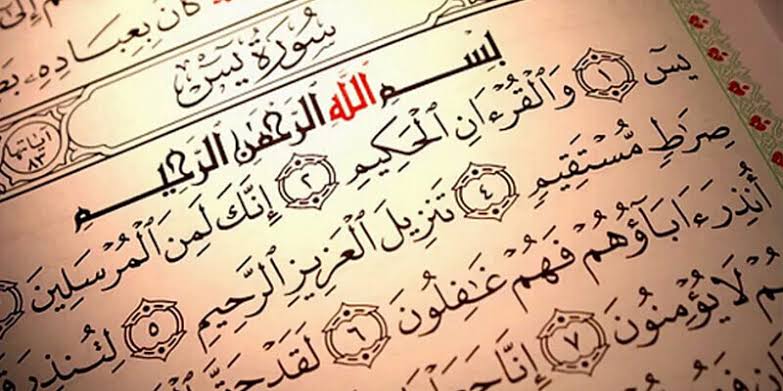 كَانَ بِعِبَادِهِۦ
سُورَةُ يسٓ
آياتها ٨٣
بِسْمِ اللَّهِ الرَّحْمَٰنِ الرَّحِيمِ
يسٓ ١ وَالْقُرْءَانِ الْحَكِيمِ ٢ إِنَّكَ لَمِنَ الْمُرْسَلِينَ
صِرَٰطٍ مُّسْتَقِيمٍ ٤ تَنزِيلَ الْعَزِيزِ الرَّحِيمِ ٥ لِتُنذِرَ
أُنذِرَ ءَابَآؤُهُمْ فَهُمْ غَٰفِلُونَ ٦ لَقَدْ
لَا يُؤْمِنُونَ ٧ إِنَّا